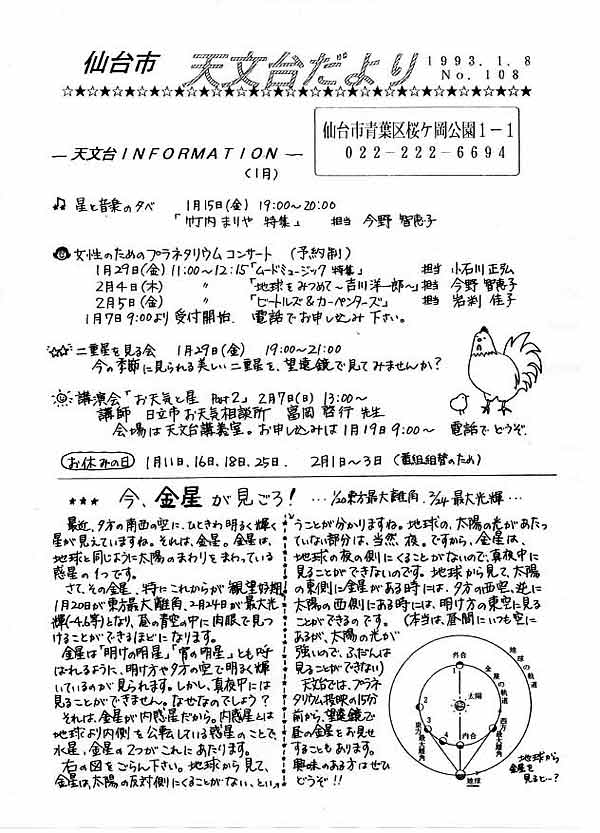 仙台市 天文台だより
1993.1.8
No.108
☆★☆★☆★☆★☆★☆★☆★☆★☆★☆★☆★☆★☆★☆★☆★☆★☆★☆★☆★☆
仙台市青葉区桜ケ岡公園1-1
022-222-6694
― 天文台INFORMATION ―
(1月)
♫ 星と音楽の夕べ 1月15日(金) 19:00~20:00
「竹内まりや 特集」 担当 今野 智恵子
女性のためのプラネタリウムコンサート (予約制)
1月29日(金) 11:00~12:15「ムードミュージック 特集」 担当 小石川 正弘
2月4日(木) 〃 「地球をみつめて~吉川洋一郎~」 担当 今野 智恵子
2月5日(金) 〃 「ビートルズ&カーペンターズ」 担当 岩渕 佳子
1月7日9:00より 受付開始. 電話でお申し込み下さい。
☆☆ 二重星を見る会 1月29日(金) 19:00~21:00
今の季節に見られる美しい二重星を、望遠鏡で見てみませんか?
講演会「お天気と星 Part2」 2月7日(日) 13:00~
講師 日立市お天気相談所 冨岡 啓行 先生
会場は天文台講義室。お申し込みは1月19日9:00~ 電話でどうぞ.
お休みの日 1月11日、16日、18日、25日. 2月1日~3日 (番組組替のため)
★★★ 今、金星が見ごろ! …1/20東方最大離角、2/24最大光輝…
最近、夕方の南西の空に、ひときわ明るく輝く
星が見えていますね。それは、金星。金星は、
地球と同じように太陽のまわりをまわっている
惑星の1つです。
さて、その金星、特にこれからが観望好期。
1月20日が東方最大離角、2月24日が最大光
輝(-4.6等)となり、昼の青空の中に肉眼で見つ
けることができるほどになります。
金星は「明けの明星」「宵の明星」とも呼
ばれるように、明け方や夕方の空で明るく輝
いているのが見られます。しかし、真夜中には
見ることができません。なぜなのでしょう?
それは、金星が内惑星だから。内惑星とは
地球より内側を公転している惑星のことで、
水星、金星の2つがこれにあたります。
右の図をごらん下さい。地球から見て、
金星は、太陽の反対側にくることがない、とい
うことが分かりますね。地球の、太陽の光があたっ
ていない部分は、当然、夜。ですから、金星は、
地球の夜の側にくることがないので、真夜中に
見ることができないのです。地球から見て、太陽
の東側に金星がある時には、夕方の西空、逆に
太陽の西側にある時には、明け方の東空に見る
ことができるのです。(本当は、昼間にいつも空に
あるが、太陽の光が
強いので、ふだんは
見ることができない)
天文台では、プラネ
タリウム投映の15分
前から、望遠鏡で
昼の金星をお見せ
することもあります。
興味のある方はぜひ
どうぞ!!
外合
1
金星の軌道
地球の軌道
太陽
2
3
4
東方最大離角
内合
西方最大離角
地球
地球から
金星を
見ると…?